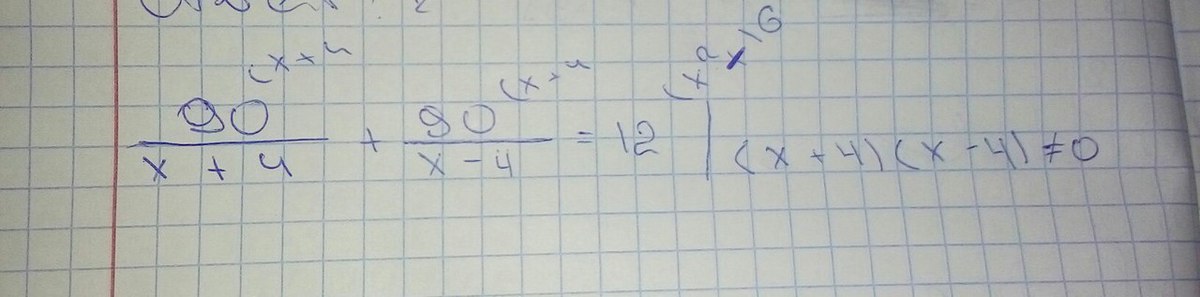 90(x+4 / x + 4 + 90(x+4 / x - 4 = 12(x² 16 | (x + 4)(x - 4) ≠ 0